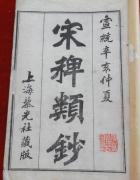 宣統辛亥仲夏
宋稗類鈔
上海蔡光社藏版